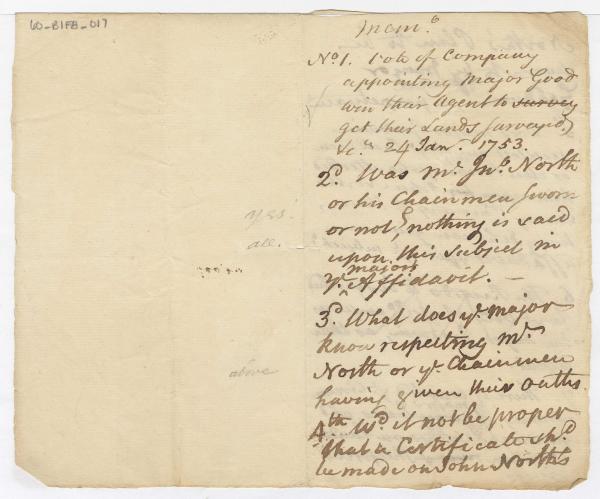 60-B1FB-017
Mem.o
No 1. Vote of Company
appointing Major Good
win their Agent to survey
get their Lands Surveyed,
&c.a 24 Jan.y 1753.
2.d Was Mr. Jno. North
or his Chainmen sworn
or not, nothing is said
upon this subject in
majors
ye. ^ Affidavit. —
3.d What does ye. major
know respecting Mr.
North or ye. Chainmen
having given their Oaths.
4th W.d it not be proper
that a Certificate sh.d
be made on John North's
yes!
all.
above